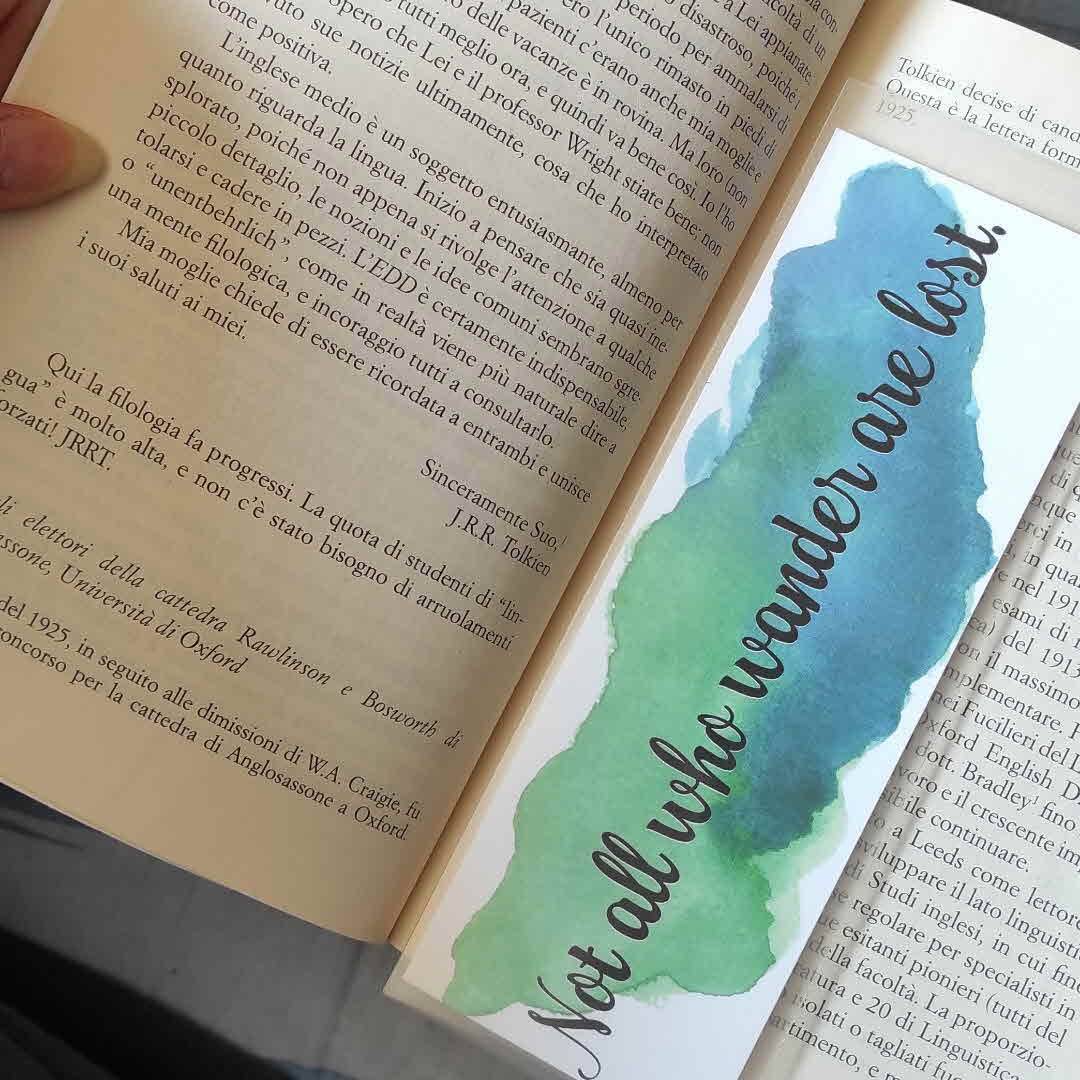 a Lei appianate.
disastroso, poiché i
periodo per ammalarsi di
ero l'unico rimasto in piedi di
pazienti c'erano anche mia moglie e
delle vacanze è in rovina. Ma loro (non
tutti meglio ora, e quindi va bene così. Io l'ho
opero che Lei e il professor Wright stiate bene: non
vuto sue notizie ultimamente, cosa che ho interpretato
come positiva.
L'inglese medio è un soggetto entusiasmante, almeno per
quanto riguarda la lingua. Inizio a pensare che sia quasi ine-
splorato, poiché non appena si rivolge l'attenzione a qualche
piccolo dettaglio, le nozioni e le idee comuni sembrano sgre-
tolarsi e cadere in pezzi. L'EDD è certamente indispensabile,
o “unentbehrlich”, come in realtà viene più naturale dire a
una mente filologica, e incoraggio tutti a consultarlo.
Mia moglie chiede di essere ricordata a entrambi e unisce
i suoi saluti ai miei.
Sinceramente Suo,
J.R.R. Tolkien
Qui la filologia fa progressi. La quota di studenti di “lin-
gua” è molto alta, e non c'è stato bisogno di arruolamenti
forzati! JRRT.
li elettori della cattedra Rawlinson e Bosworth di
assone, Università di Oxford
del 1925, in seguito alle dimissioni di W.A. Craigie, fu
concorso per la cattedra di Anglosassone a Oxford.
Tolkien decise di cand
Questa è la lettera form
1925.
Not all who wander are lost.
di qu
in qua
e nel 191
esami di
del 191
on il massimo
mplementare. P
nei Fucilieri del L
Oxford English D
dott. Bradley¹ fino
voro e il crescente im
sibile continuare.
o a Leeds come lettor
sviluppare il lato linguisti
di Studi inglesi, in cui fino
se regolare per specialisti in
e esitanti pionieri (tutti del
della facoltà. La proporzio-
ratura e 20 di Linguistica
isolati o tagliati fu
partimento, e